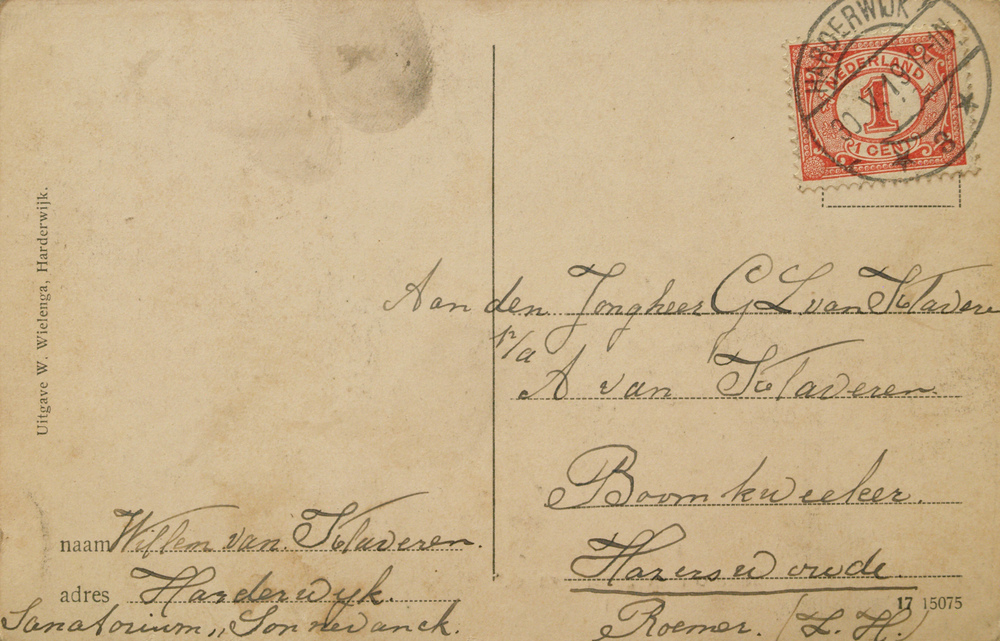 HARDERWIJK
NEDERLAND
1
1 CENT
Uitgave W. Wielenga, Harderwijk.
Aan den Jongheer G L van Klavere
p/a
A van Klaveren
Boomkweeker.
Hazerswoude
Roemer. (Z. H.)
naam Willem van Klaveren.
adres Harderwyk.
Sanatorium „Sonnevanck.
17 15075